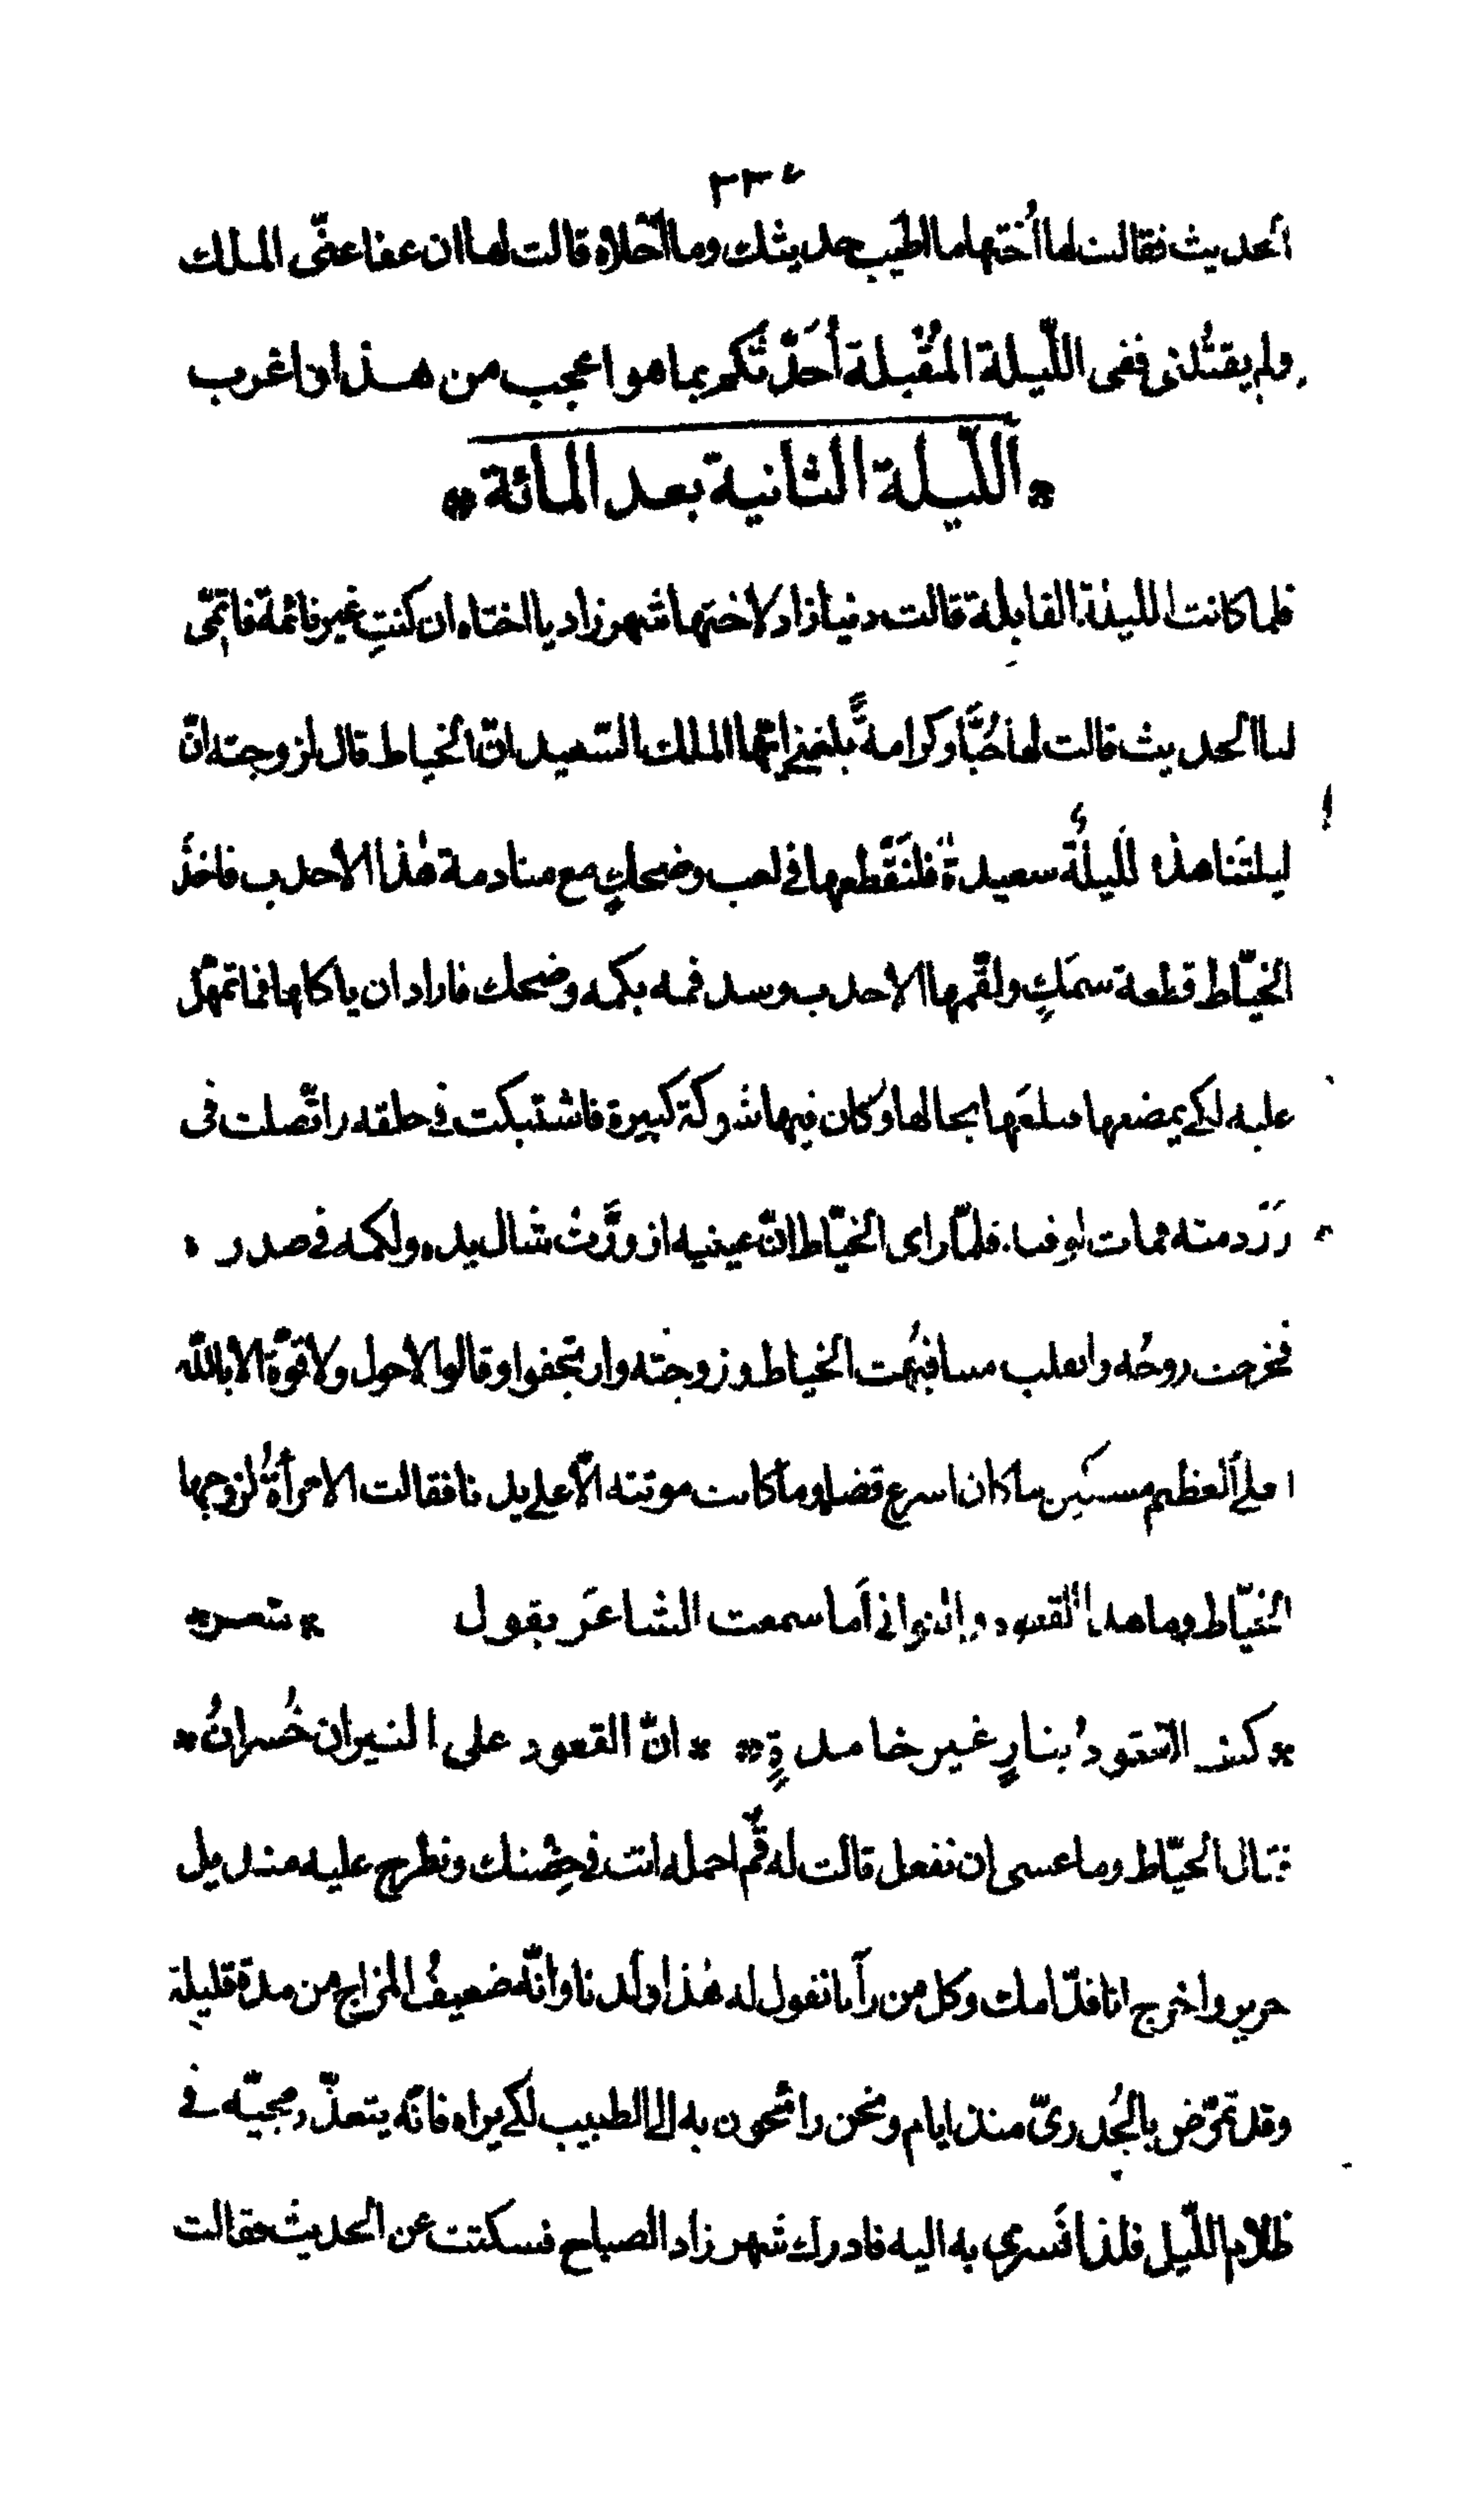 ٢٣٤
الحديث فقالت لها أختها ما اطيب حديثك وما احلاه قالت لها ان عفا عنّى الملك
ولم يقتُلنى ففى اللّيلة المُقْبلة أُحَدّثُكم بما هو اعجب من هذا واغرب
* اللّيلة الثانية بعد المائة *
فلما كانت الليلة القابلة قالت دنيازاد لاختها شهرزاد يا اختاه ان كنتِ غير نائمة فاتمّى
لنا الحديث قالت لها حُبًّا وكرامةً بلغنى ايّها الملك السّعيد انّ الخياط قال لزوجته انّ
ليلتَنا هذه لَليلةٌ سعيدةٌ فلنَقْطعها فى لعب وضحكٍ مع منادمة هٰذا الاحدب فاخذ
الخيّاط قطعة سمَكٍ ولقّمها الاحدب وسد فمه بكمه وضحك فاراد ان ياكلها فما تمهّل
عليه لكى يمضغها بلعَها بحالها وكان فيها شوكة كبيرة فاشتبكت فى حلقه واتّصلت فى
زَرَدمته فمات لوقته فلمّا راى الخيّاط انّ عينيه ازورّت شال يده ولكمه فى صدره
فخرجت روحُه وانقلب ميتا فبُهت الخياط وزوجته وارتجفوا وقالوا لا حول ولا قوّة الا باللّه
العلى العظيم مسكين ما كان اسرع قضاه وما كانت موتته الّا على يدنا فقالت الامرأةُ لزوجها
الخيّاط وما هذا القعود والتوانى أما سمعت الشاعرَ يقول * شعر *
* كيف القعودُ بنارٍ غير خامدةٍ * * انّ القعود على النيران خُسرانُ *
فقال الخيّاط وما عسى ان نفعل قالت له قُم احمله انت فى حِضنك ونطرح عليه منديل
حرير واخرج انا قدّامك وكل من رآنا نقول له هٰذا ولَدنا وانّه ضعيفُ المزاج من مدّة قليلة
وقد تمرّض بالجُدرىّ منذ ايام ونحن رائحون به الى الطبيب لكى يراه فانّه يتعذّر مجيّه فى
ظلام اللّيل فلذا نَسرى به اليه فادرك شهرزاد الصباح فسكتت عن الحديث فقالت